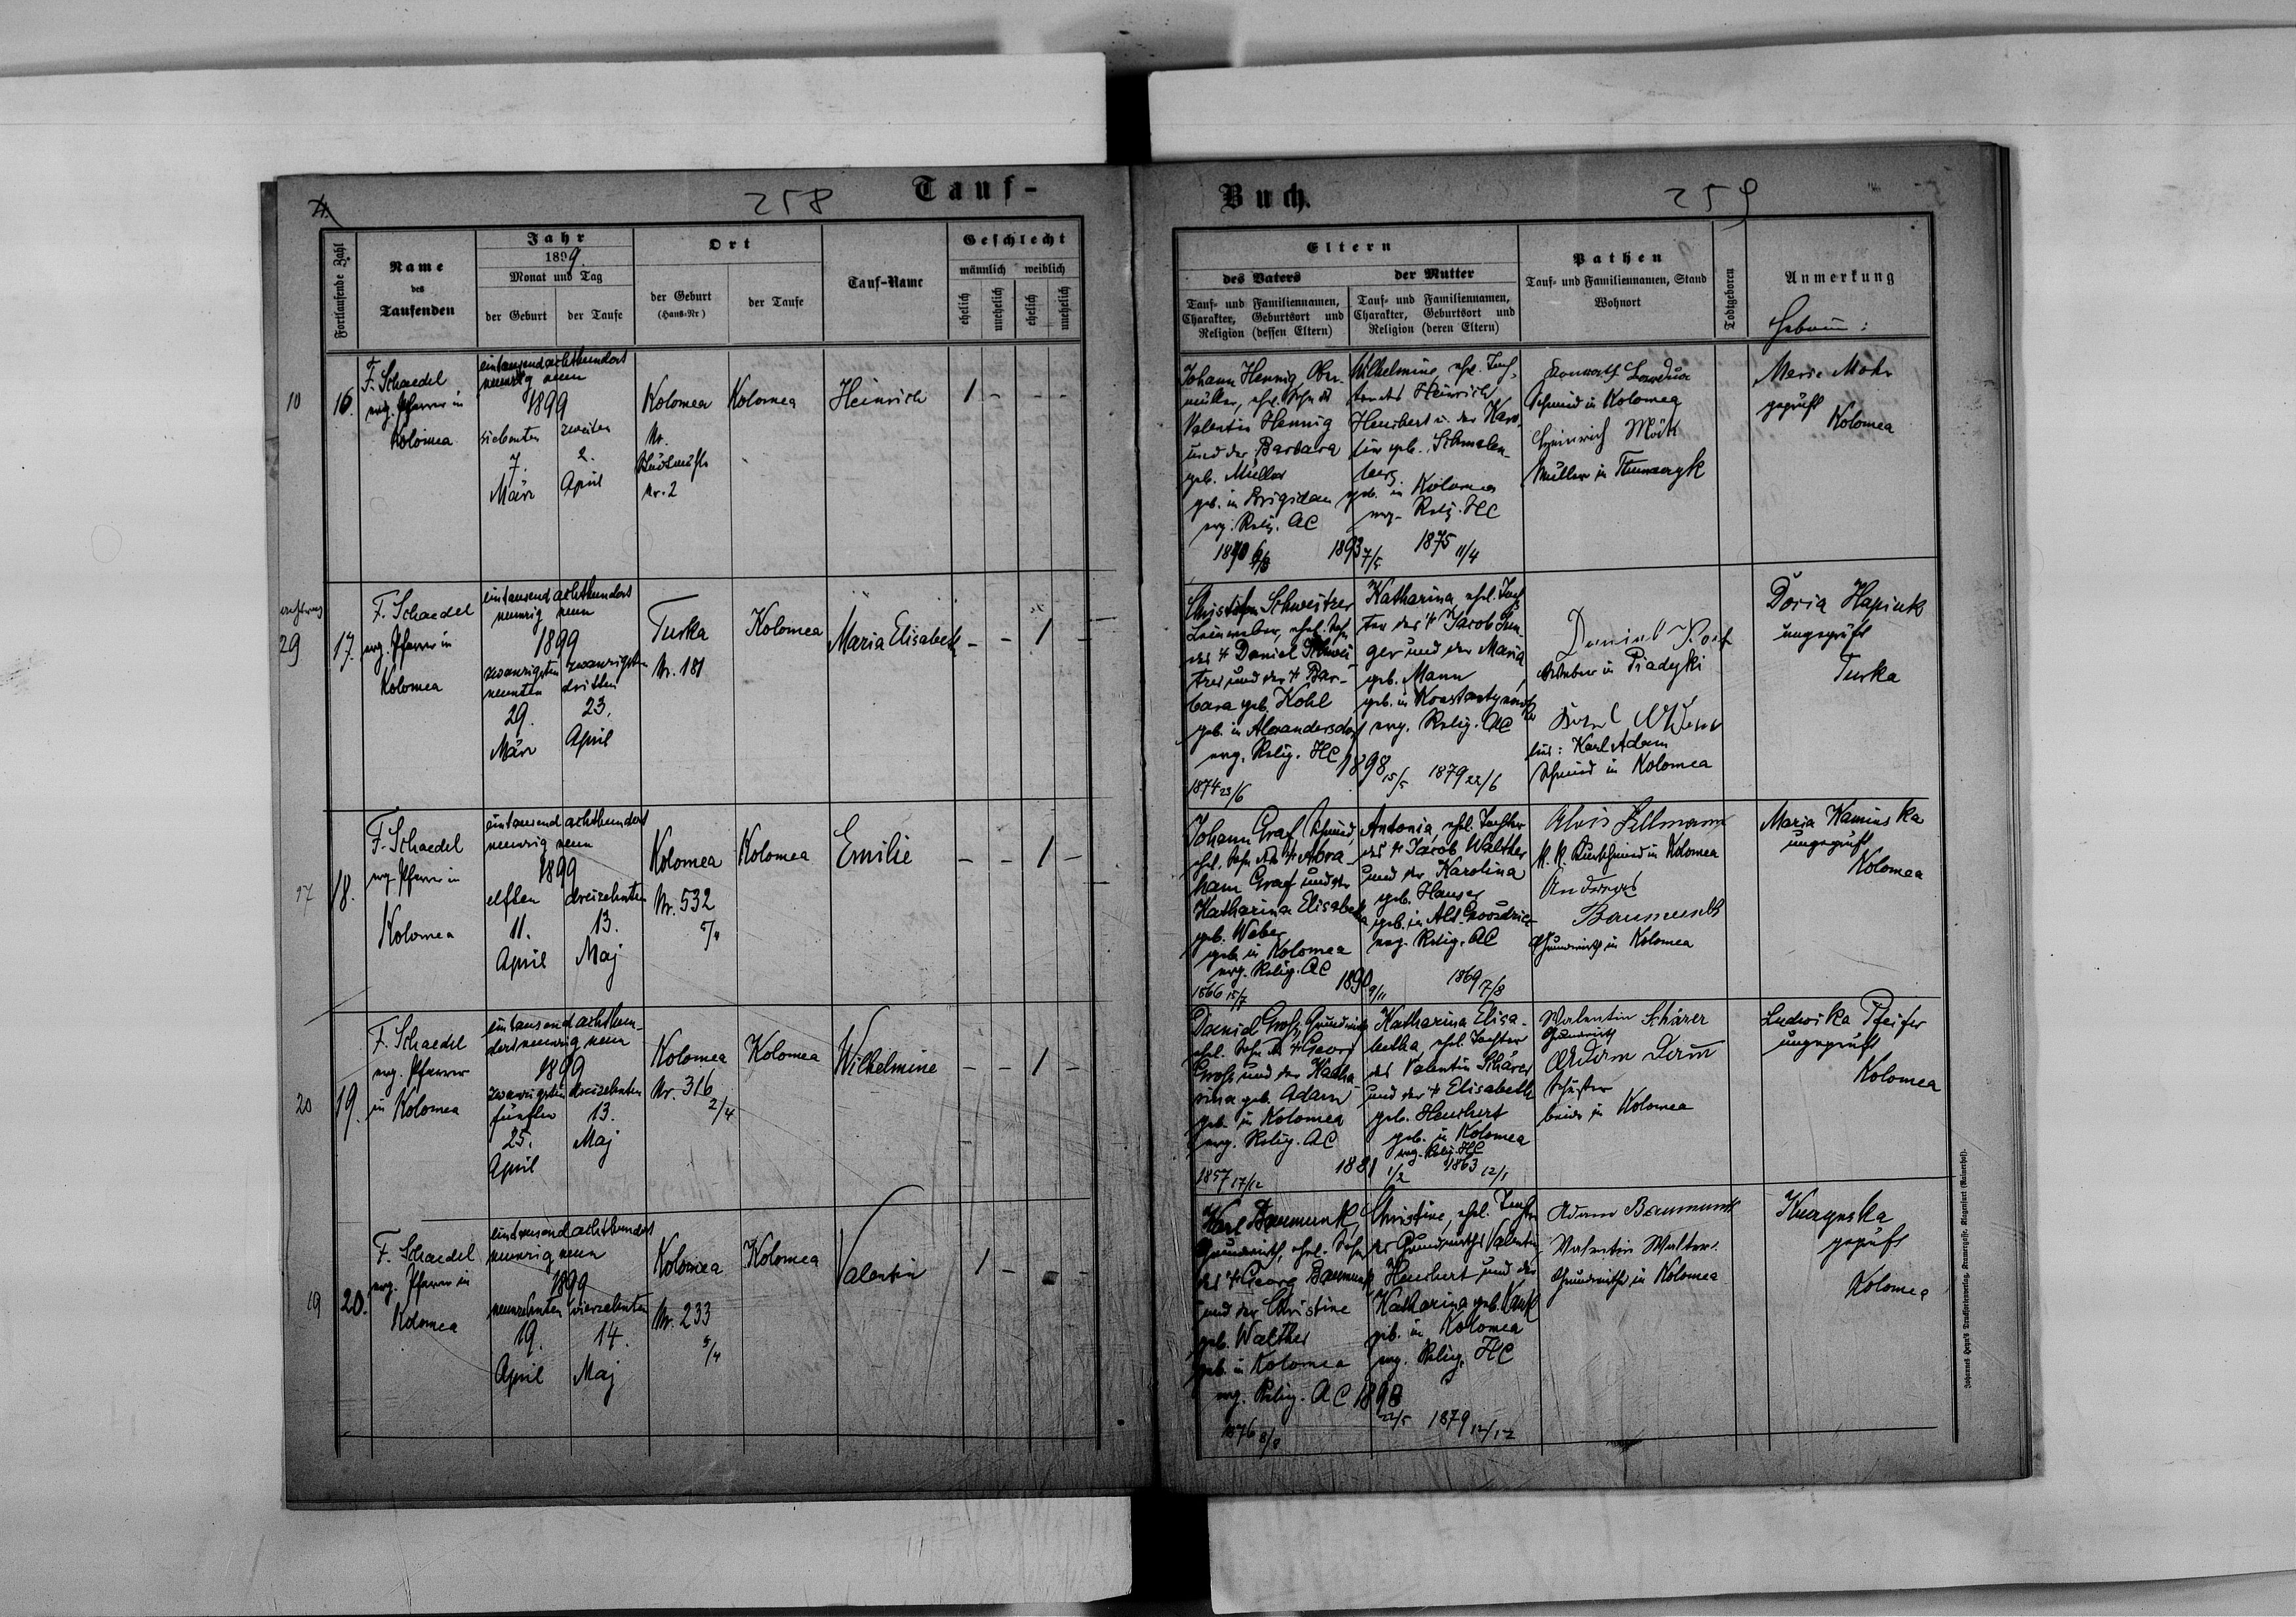 258
Tauf-
Fortlaufende Zahl
Name
des
Taufenden
Jahr
1899.
Monat und Tag
der Geburt
der Taufe
Ort
der Geburt
(Haus-Nr)
der Taufe
Tauf-Name
Geschlecht
männlich weiblich
ehelich
unehelich
ehelich
unehelich
10
16.
F. Schaedel
evg. Pfarrer in
Kolomea
eintausendachthundert
neunzig neun
1899
siebenten
7.
März
zweiten
2.
April
Kolomea
Nr.
Nr. 2
Kolomea
Heinrich
1 - - -
29
17.
F. Schaedel
evg. Pfarrer in
Kolomea
eintausend achthundert
neunzig neun
1899
zwanzigsten
neunten
29.
März
zwanzigsten
dritten
23.
April
Turka
Nr. 181
Kolomea
Maria Elisabeth
- - 1 -
17
18.
F. Schaedel
evg. Pfarrer in
Kolomea
eintausend achthundert
neunzig neun
1899
elften
11.
April
dreizehnten
13.
Maj
Kolomea
Nr. 532
Kolomea
Emilie
- - 1 -
20
19.
F. Schaedel
evg. Pfarrer
in Kolomea
eintausend achthun-
dert neunzig neun
1899
zwanzigsten
fünften
25.
April
dreizehnten
13.
Maj
Kolomea
Nr. 316
2/4
Kolomea
Wilhelmine
- - 1 -
19
20.
F. Schaedel
evg. Pfarrer in
Kolomea
eintausend achthundert
neunzig neun
1899
neunzehnten
19.
April
vierzehnten
14.
Maj
Kolomea
Nr. 233
5/4
Kolomea
Valentin
1 - - -
Buch.
259
Eltern
des Vaters
Tauf- und Familiennamen,
Charakter, Geburtsort und
Religion (dessen Eltern)
der Mutter
Tauf- und Familiennamen,
Charakter, Geburtsort und
Religion (deren Eltern)
Pathen
Tauf- und Familiennamen, Stand
Wohnort
Todtgeboren
Anmerkung
Johann Hennig, Ober-
müller, ehl. Sohn d.
Valentin Hennig
und der Barbara
geb. Müller
geb. in Brigidau
evg. Relig. AC
1893 7/5
Wilhelmine, ehl. Toch-
ter des Heinrich
Heuchert u. der Karo-
lin geb. Schmalen-
berg
geb. in Kolomea
evg. Relig. HC
1875 11/4
Schmied in Kolomea
Heinrich Möck
Müller in
Marie Mohr
geprüft
Kolomea
Christian Schweitzer
Leinweber, ehl. Sohn
des † Daniel Schwei-
tzer und der † Bar-
bara geb. Kohl
geb. in Alexandersdorf
evg. Relig. HC
1874 23/6
1898 15/5
Katharina, ehl. Toch-
ter des † Jacob
ger und der Maria
geb. Mann
geb. in
evg. Relig. AC
1879 22/6
Daniel
Weber in Piadyki
Karl Adam
Schmied in Kolomea
Doria Hapiuk
ungeprüft
Turka
Johann Graf Schmied,
ehl. Sohn des † Abra-
ham Graf und der
Katharina Elisabeth
geb. Weber
geb. in Kolomea
evg. Relig. AC
1866 15/7
1890 9/11
Antonia, ehl. Tochter
des † Jacob Walther
und der Karolina
geb. Hauser
geb. in Alt
evg. Relig. AC
1869 7/8
Alois
K. K. Kurschmied in Kolomea
Andreas
Baumunk
Grundwirth in Kolomea
Maria Kaminska
ungeprüft
Kolomea
Daniel Groß, Grundwirth
ehl. Sohn des † Georg
Groß und der Katha-
rina geb. Adam
geb. in Kolomea
evg. Relig. AC
1857 17/12
1881 1/2
Katharina Elisa-
betha, ehl. Tochter
des Valentin Schärer
und der † Elisabeth
geb. Heuchert
geb. in Kolomea
evg. Relig. HC
1863 12/1
Valentin Schärer
Grundwirth
Adam
Schuster
beide in Kolomea
Ludwika Pfeifer
ungeprüft
Kolomea
Karl Baumunk,
Grundwirth, ehl. Sohn
des † Georg Baumunk
und der Christine
geb. Walther
geb. in Kolomea
evg. Relig. AC
1898 22/5
Christine, ehl. Tochter
des Grundwirths Valentin
Heuchert und der
Katharina geb.
geb. in Kolomea
evg. Relig. HC
1879 12/12
Adam Baumunk
Valentin Walter.
Grundwirthe in Kolomea
geprüft
Kolomea